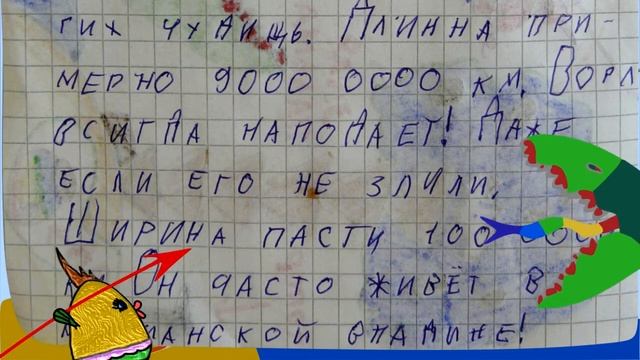 гих чудищь. Длинна при-
мерно 9000 0000 км. Ворл
всигда нападает! Даже
если его не злили.
Ширина пасти 100 000
Он часто живёт в
впадине!